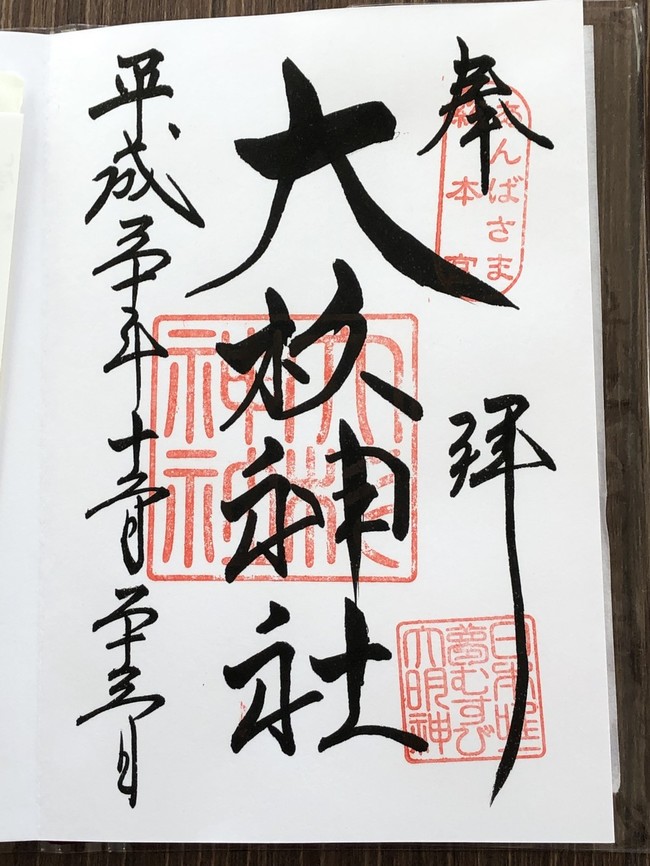 奉拝
あんばさま
総本宮
大杉神社
大杉
神社
日本唯一
夢むすび
大明神
平成三十年十二月二十三日